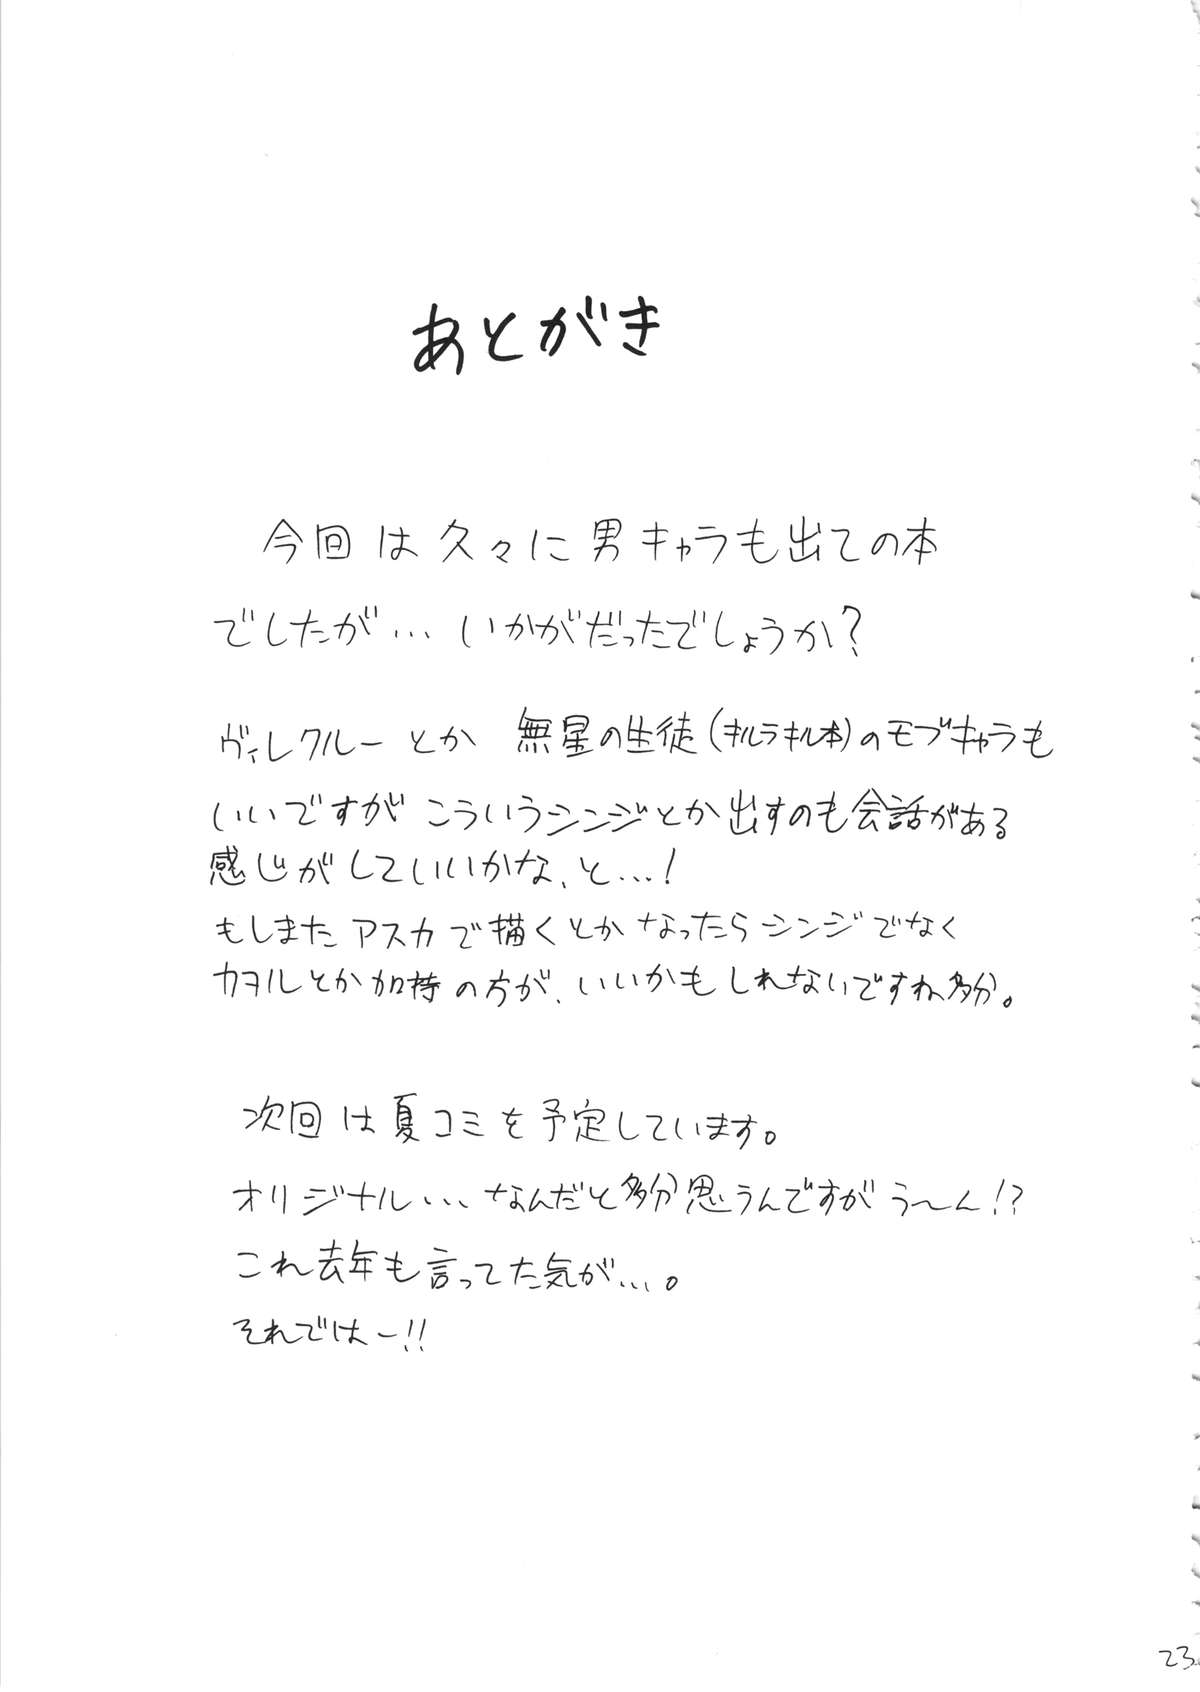 あとがき
今回は久々に男キャラも出ての本
でしたが… いかがだったでしょうか？
ヴィレクルーとか 無星の生徒（キルラキル本）のモブキャラも
いいですが こういうシンジとか出すのも会話がある
感じがしていいかな、と…！
もしまたアスカで描くとかなったらシンジでなく
カヲルとか加持の方が、いいかもしれないですね多分。
次回は夏コミを予定しています。
オリジナル…なんだと多分思うんですが う〜ん！？
これ去年も言ってた気が…。
それではー！！
23